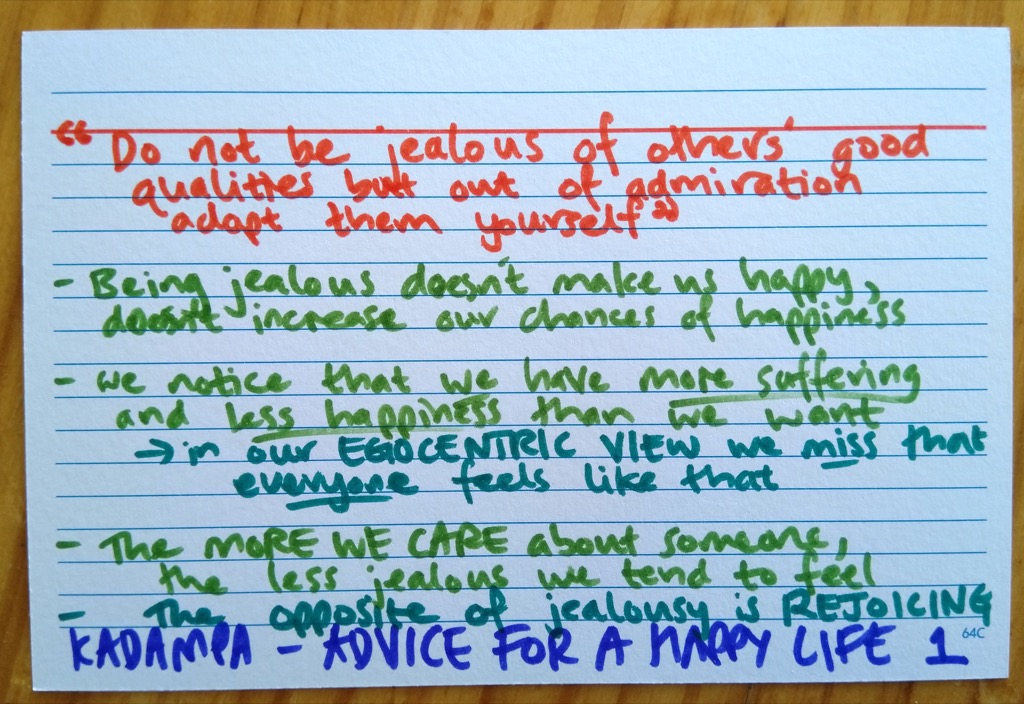 “ Do not be jealous of others' good
qualities but out of admiration
adopt them yourself”
- Being jealous doesn't make us happy,
doesn't increase our chances of happiness
- we notice that we have more suffering
and less happiness than we want
→ in our EGOCENTRIC VIEW we miss that
everyone feels like that
- The MORE WE CARE about someone,
the less jealous we tend to feel
- The opposite of jealousy is REJOICING
64C
KADAMPA - ADVICE FOR A HAPPY LIFE 1